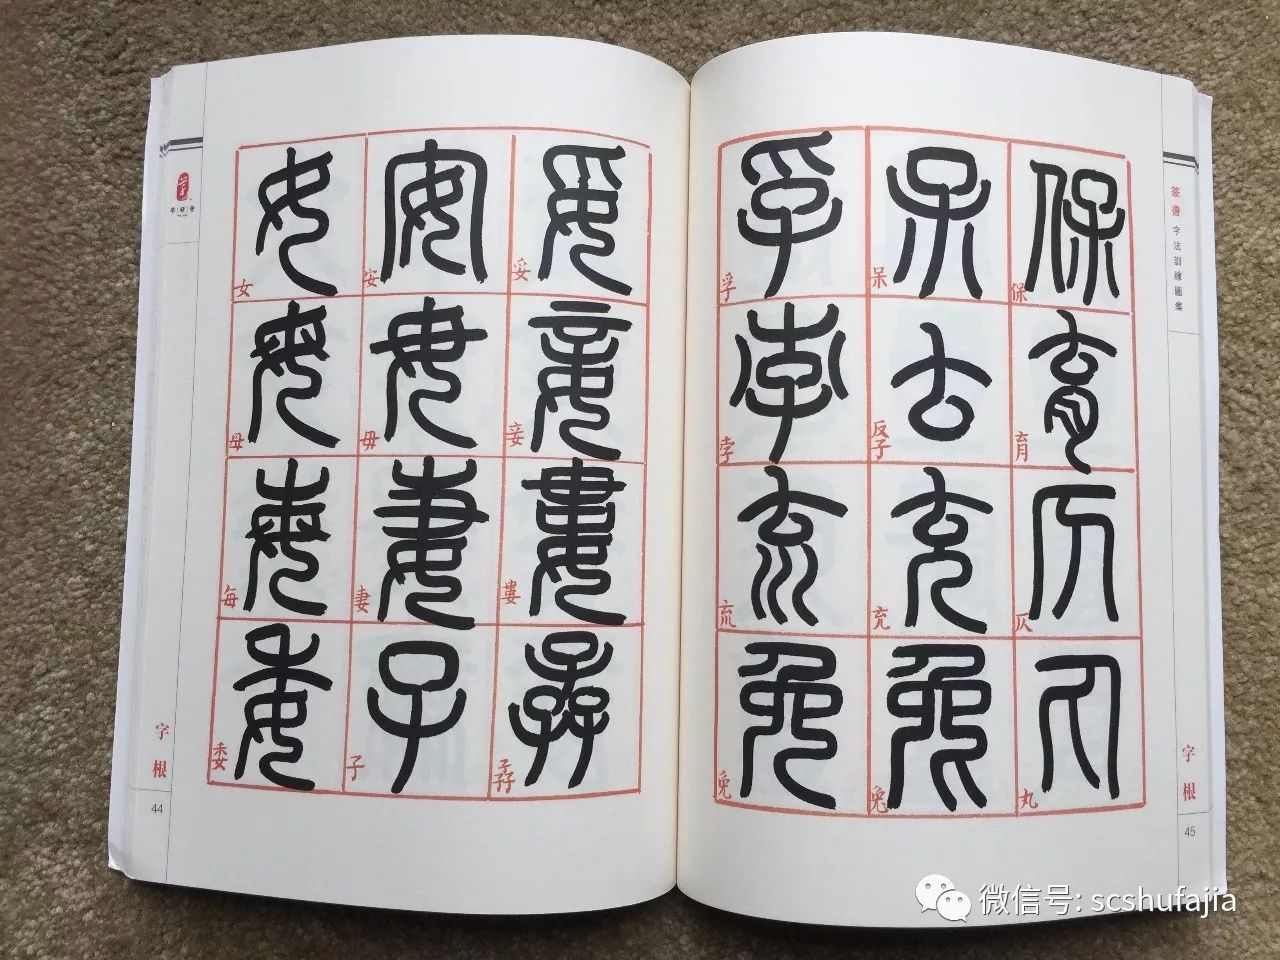 女 安 妥
母 毋 妾
每 妻 婁
委 子 孨
字根
44
孚 呆 保
孛 育
㐬 充 仄
免 兔 丸
篆書字法訓練圖集
字根
45
微信号: scshufajia